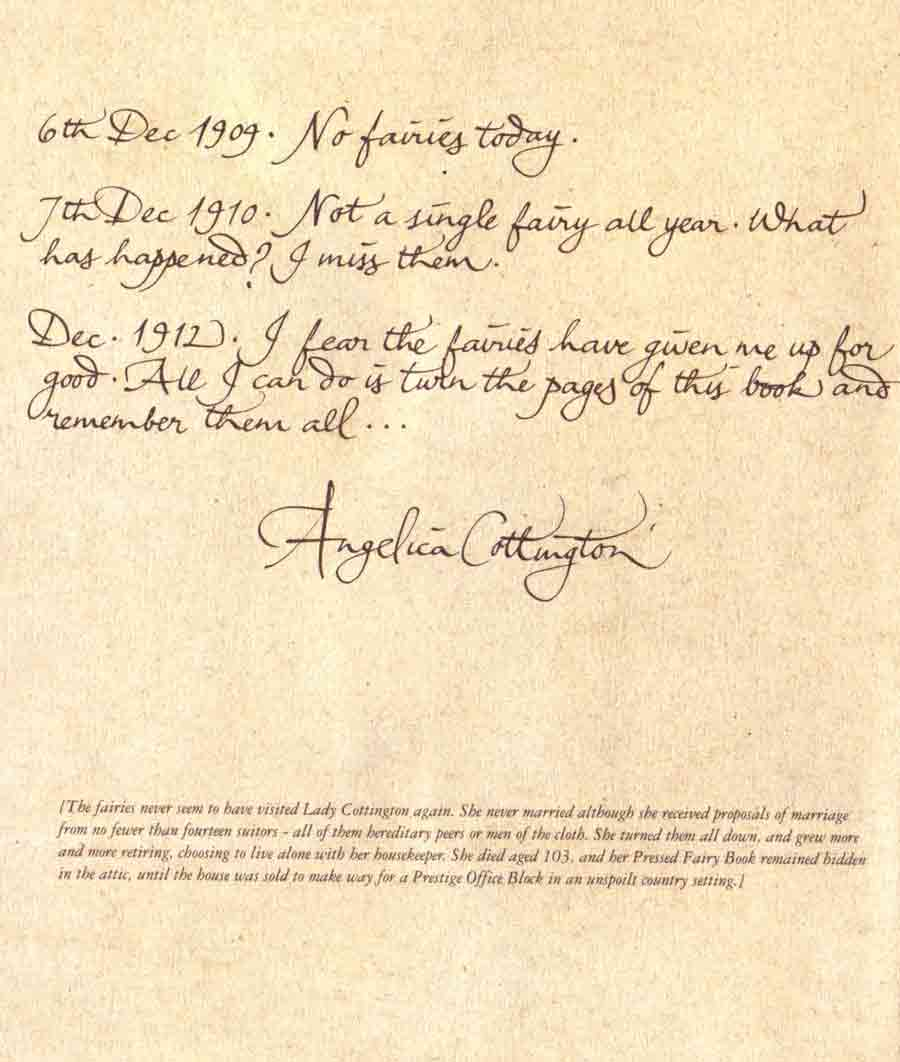 6th Dec 1909. No fairies today.
7th Dec 1910. Not a single fairy all year. What
has happened? I miss them.
Dec. 1912. I fear the fairies have given me up for
good. All I can do is turn the pages of this book and
remember them all...
Angelica Cottington
[The fairies never seem to have visited Lady Cottington again. She never married although she received proposals of marriage
from no fewer than fourteen suitors - all of them hereditary peers or men of the cloth. She turned them all down, and grew more
and more retiring, choosing to live alone with her housekeeper. She died aged 103, and her Pressed Fairy Book remained hidden
in the attic, until the house was sold to make way for a Prestige Office Block in an unspoilt country setting.]